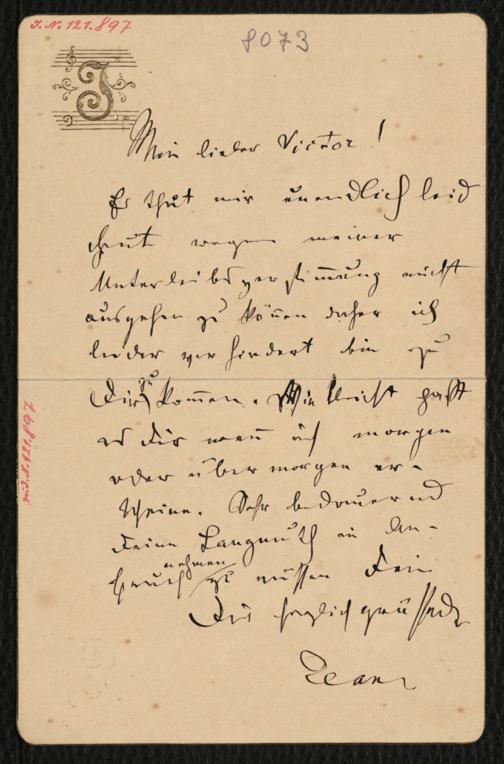 J.N. 121.897
8073
J
Mein lieber Victor!
Es thut mir unendlich leid
heut wegen meiner
Unterleibsverstimmung nicht
ausgehen zu können daher ich
leider verhindert bin zu
Dir zu kommen. Vielleicht passt
es Dir wenn ich morgen
oder übermorgen er-
scheine. Sehr bedauernd
Deine Langmuth in An-
spruch nehmen zu müssen Dein
Dich herzlich grüssender
Jean
J.N. 121.897